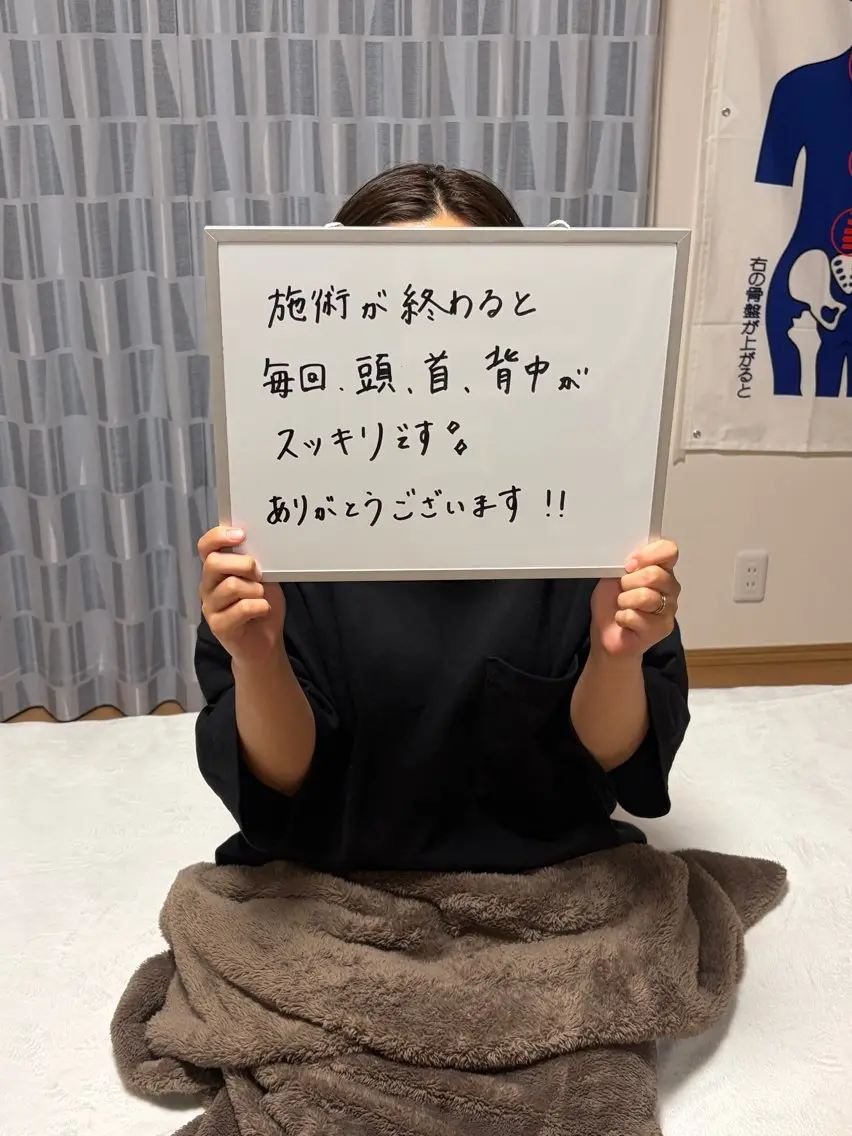 施術が終わると
毎回、頭、首、背中が
スッキリです
ありがとうございます!!
右の骨盤が上がると